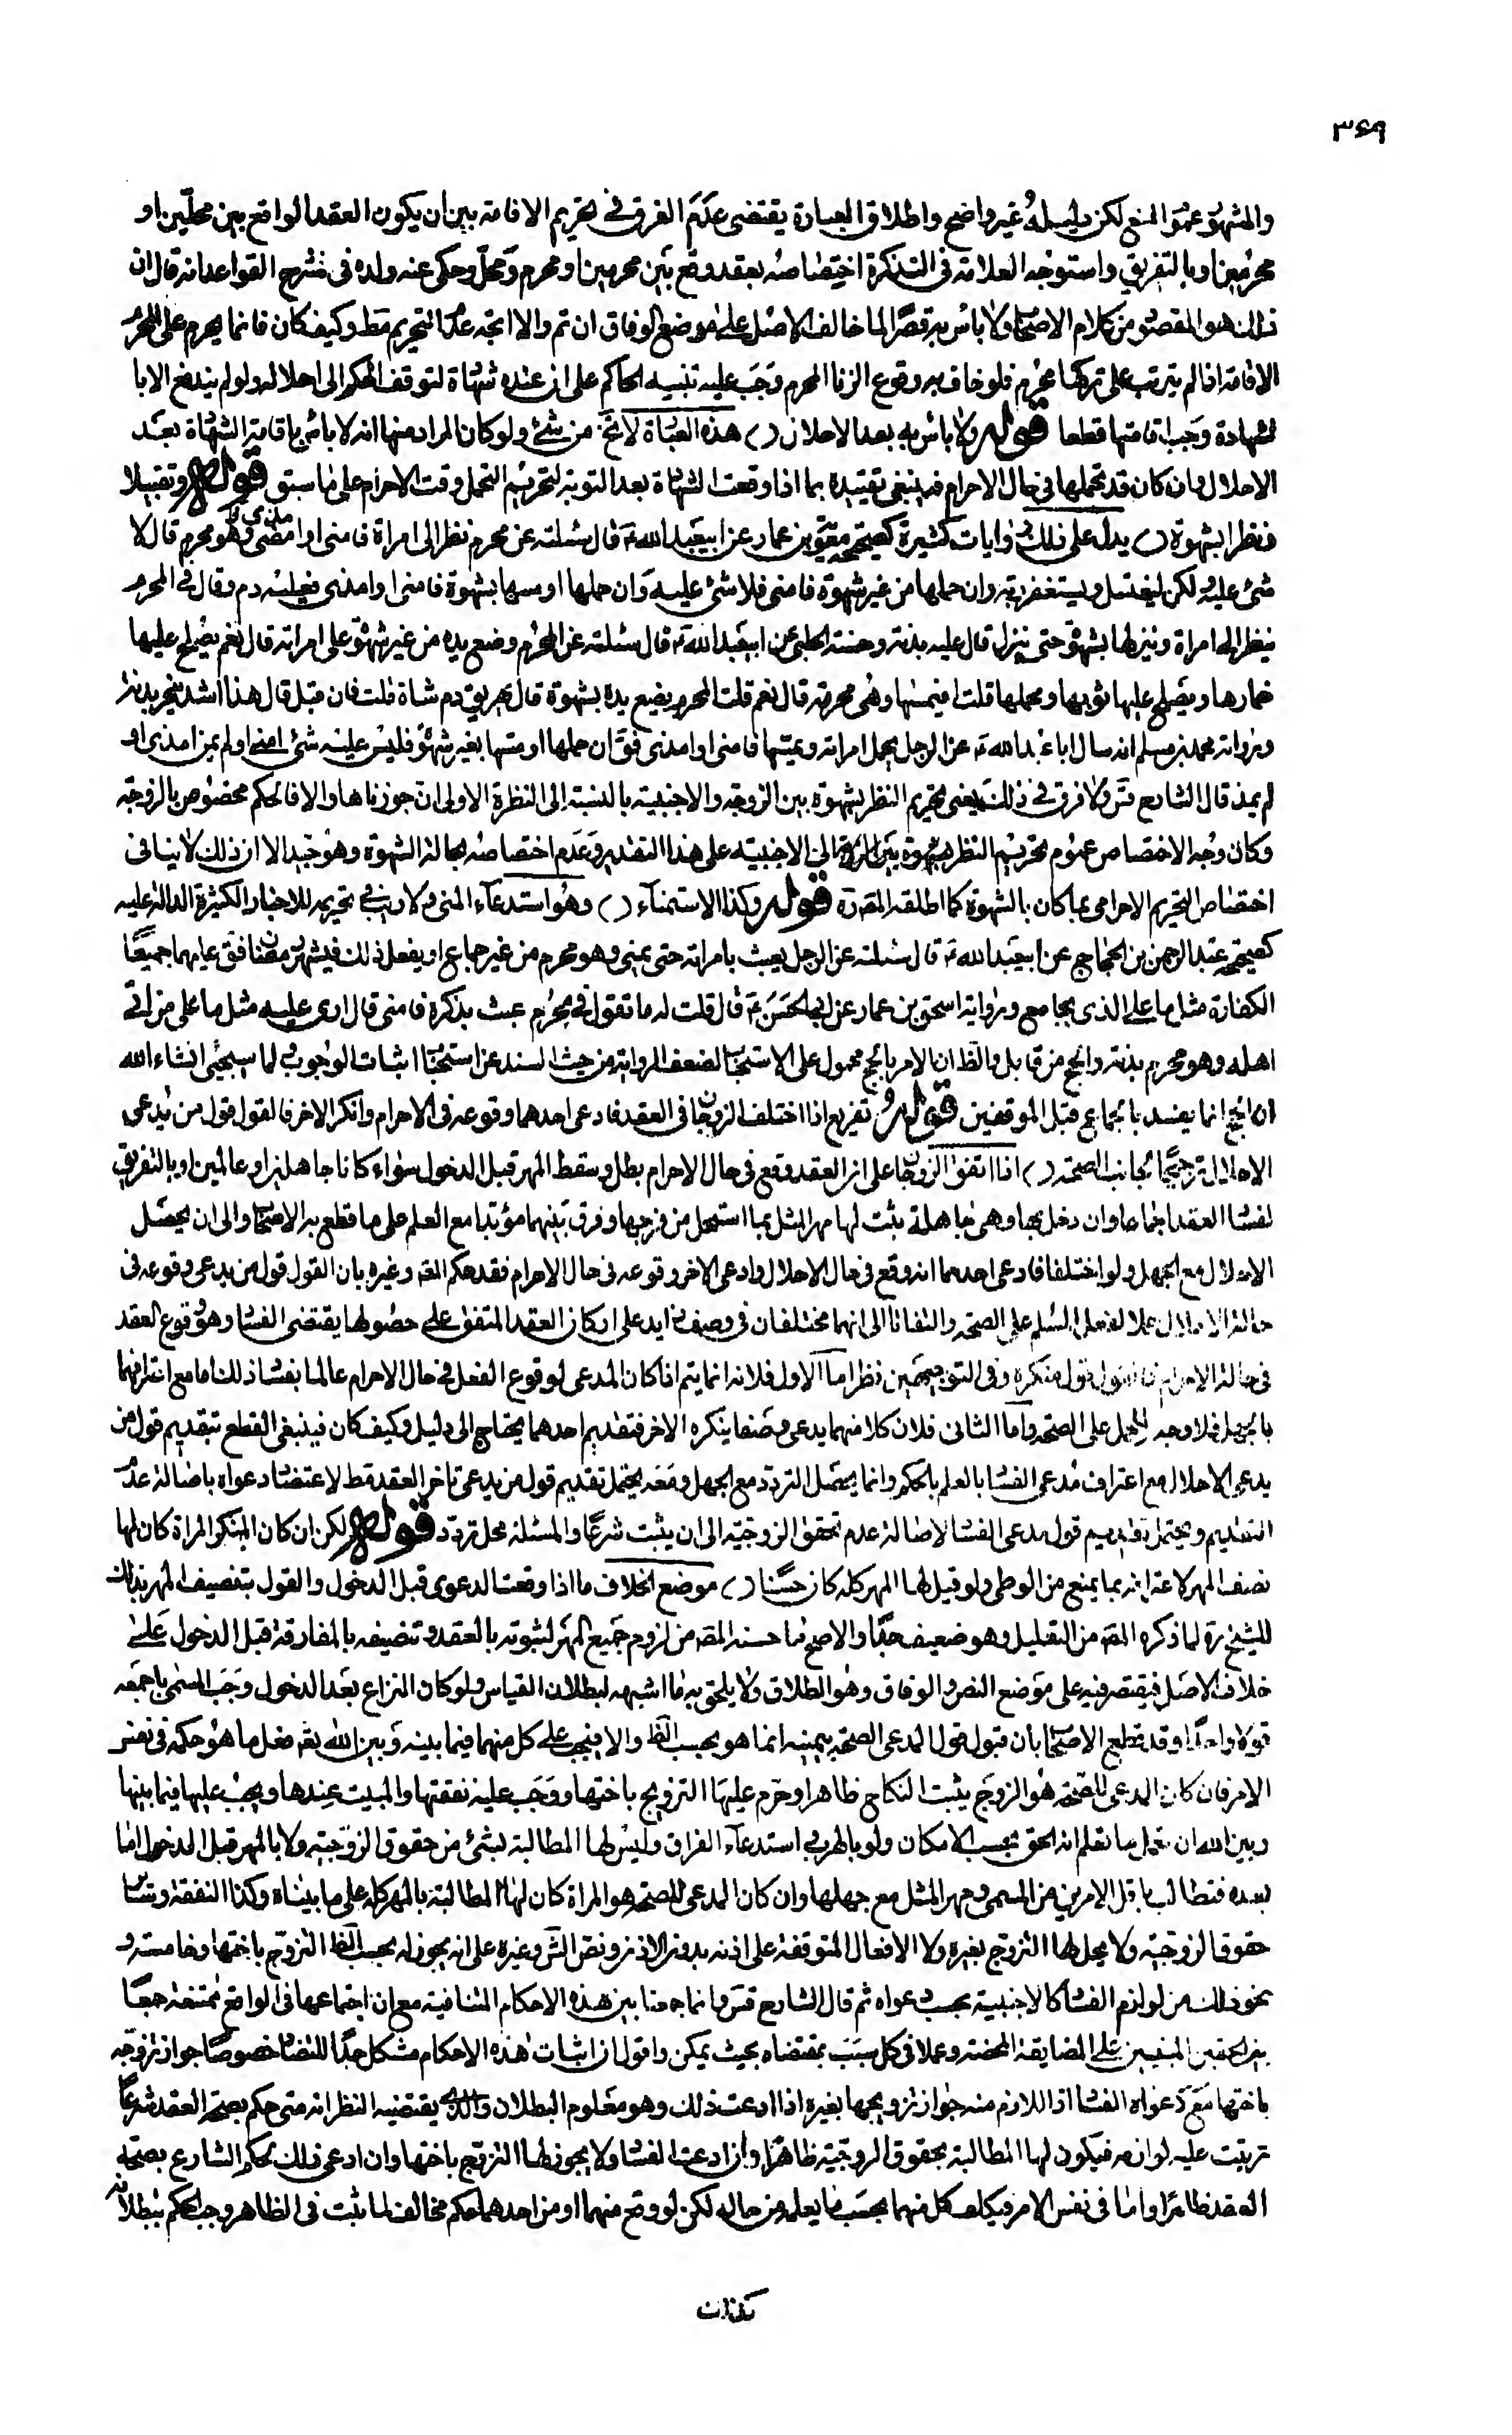 ۳۶۹
والمشهور عموم المنع لكن دليله غير واضح واطلاق العبارة يقتضى عدم الفرق فى تحريم الاقامة بين ان يكون العقد الواقع بين محلّين او
محرمين او بالتفريق واستوجه العلامة فى التذكرة اختصاصه بعقد وقع بين محرمين او محرم ومحلّ وحكى عنه ولده فى شرح القواعد انه قال ان
ذلك هو المقصو من كلام الاصحا ولا باس به قصرا لما خالف الاصل على موضع الوفاق ان تم والا اتجه عدم التحريم مط وكيف كان فانما يحرم على المحرم
الاقامة اذا لم يترتب على تركها محرم فلو خاف به وقوع الزنا المحرم وجب عليه تنبيه الحاكم على ان عنده شهادة لتوقف الحكم الى احلاله ولو لم يندفع الا با
لشهادة وجب اقامتها قطعا قوله ولا بأس به بعد الاحلال () هذه العبارة لا تخ من شئ ولو كان المراد منها انه لا بأس باقامة الشهادة بعد
الاحلال وان كان قد تحملها فى حال الاحرام فينبغى تقييده بما اذا وقعت الشهادة بعد التوبة لتحريم التحمل وقت الاحرام على ما سبق قوله وتقبيلا
ونظرا بشهوة () يدل على ذلك روايات كثيرة كصحيحة معوية بن عمار عن ابيعبد الله ع قال سئلته عن محرم نظر الى امراة فامنى او امذى وهو محرم قال لا
شئ عليه لكن ليغتسل ويستغفر ربه وان حملها من غير شهوة فامنى فلا شئ عليه وان حملها او مسها بشهوة فامنى او امذى فعليه دم وقال فى المحرم
ينظر الى امراة وينزلها بشهوة حتى ينزل قال عليه بدنة وحسنة الحلبى عن ابيعبد الله ع قال سئلته عن المحرم وضع يده من غير شهوة على امراته قال نعم يصلح عليها
خمارها ويصلح عليها ثوبها ومحملها قلت افيمسها وهى محرمة قال نعم قلت المحرم يضع يده بشهوة قال يهريق دم شاة قلت فان قبل قال هذا اشد ينحر بدنة
ورواية محمد بن مسلم انه سال ابا عبد الله ع عن الرجل يحمل امراته ويمسها فامنى او امذى فق ان حملها او مسها بغير شهوة فليس عليه شئ امنى او لم يمن امذى او
لم يمذ قال الشارح قس ولا فرق فى ذلك يعنى تحريم النظر بشهوة بين الزوجة والاجنبية بالنسبة الى النظرة الاولى ان جوزناها والا فالحكم مخصوص بالزوجة
وكان وجه الاختصاص عموم تحريم النظر بشهوة الى الاجنبية على هذا التقدير وعدم اختصاصه بحالة الشهوة وهو جيد الا ان ذلك لا ينافى
اختصاص التحريم الاحرامى بما كان بالشهوة كما اطلقه المص ره قوله وكذا الاستمناء () وهو استدعاء المنى ولا ريب فى تحريمه للاخبار الكثيرة الدالة عليه
كصحيحة عبد الرحمن بن الحجاج عن ابيعبد الله ع قال سئلته عن الرجل يعبث بامراته حتى يمنى وهو محرم من غير جماع او يفعل ذلك فى شهر رمضان فق عليهما جميعا
الكفارة مثل ما على الذى يجامع ورواية اسحق بن عمار عن ابى الحسن ع قال قلت له ما تقول فى محرم عبث بذكره فامنى قال ارى عليه مثل ما على من اتى
اهله وهو محرم بدنة والحج من قابل والظ ان الامر بالحج محمول على الاستحباب لضعف الرواية من حيث السند عن اثبات الوجوب لما سيجئ انشاء الله
ان الحج انما يفسد بالجماع قبل الموقفين قوله تفريع اذا اختلف الزوجان فى العقد فادعى احدهما وقوعه فى الاحرام وانكر الاخر فالقول قول من يدعى
الاحلال ترجيحا لجانب الصحة () اذا اتفق الزوجان على ان العقد وقع فى حال الاحرام بطل وسقط المهر قبل الدخول سواء كانا جاهلين او عالمين او بالتفريق
لفساد العقد اجماعا وان دخل بها وهى جاهلة يثبت لها مهر المثل بما استحل من فرجها وفرق بينهما مؤبدا مع العلم على ما قطع به الاصحا والى ان يحصل
الاحلال مع الجهل ولو اختلفا فادعى احدهما انه وقع فى حال الاحلال وادعى الاخر وقوعه فى حال الاحرام فقد حكم المص وغيره بان القول قول من يدعى وقوعه فى
حالة الاحلال حملا لفعل المسلم على الصحة والتفاتا الى انهما مختلفان فى وصف زايد على اركان العقد المتفق على حصولها يقتضى الفساد وهو وقوع العقد
فى حالة الاحرام فالقول قول منكره وفى التوجيهين نظر اما الاول فلانه انما يتم اذا كان المدعى لوقوع الفعل فى حال الاحرام عالما بفساد ذلك اما مع اعترافهما
بالجهل فلا وجه للحمل على الصحة واما الثانى فلان كلا منهما يدعى وصفا ينكره الاخر فتقديم احدهما يحتاج الى دليل وكيف كان فينبغى القطع بتقديم قول من
يدعى الاحلال مع اعتراف مدعى الفساد بالعلم بالحكم وانما يحصل التردد مع الجهل ومعه يحتمل تقديم قول من يدعى تاخر العقد مط لاعتضاد دعواه باصالة عدم
التقديم ويحتمل تقديم قول مدعى الفساد لاصالة عدم تحقق الزوجية الى ان يثبت شرعا والمسئلة محل تردد قوله لكن ان كان المنكر المراة كان لها
نصف المهر لاعترافه بما يمنع من الوطى ولو قيل لها المهر كله كان حسنا () موضع الخلاف ما اذا وقعت الدعوى قبل الدخول والقول بتنصيف المهر بذلك
للشيخ ره لما ذكره المص من التعليل وهو ضعيف جدا والاصح ما حسنه المص من لزوم جميع المهر لثبوته بالعقد وتنصيفه بالمفارقة قبل الدخول على
خلاف الاصل فيقتصر فيه على موضع النص والوفاق وهو الطلاق ولا يلحق به ما اشبهه لبطلان القياس ولو كان النزاع بعد الدخول وجب المسمى باجمعه
قولا واحدا وقد قطع الاصحا بان قبول قول المدعى الصحة بيمينه انما هو بحسب الظ والا فيجب على كل منهما فيما بينه وبين الله تع فعل ما هو حكمه فى نفس
الامر فان كان المدعى للصحة هو الزوج يثبت النكاح ظاهرا وحرم عليه التزويج باختها ووجب عليه نفقتها والمبيت عندها ويجب عليها فيما بينها
وبين الله ان تعمل ما تعلم انه الحق بحسب الامكان ولو بالهرب استدعاء الفراق وليس لها المطالبة بشئ من حقوق الزوجية ولا بالمهر قبل الدخول اما
بعده فتطالب باقل الامرين من المسمى ومهر المثل مع جهلها وان كان المدعى للصحة هو المراة كان لها المطالبة بالمهر كله على ما بيناه وكذا النفقة وسائر
حقوق الزوجية ولا يحل لها التزوج بغيره ولا الافعال المتوقفة على اذنه بدون الاذن ونص الش وغيره على انه يجوز له بحسب الظ التزوج باختها وخامسة و
نحو ذلك من لوازم الفساد كالاجنبية بحسب دعواه ثم قال الشارح قس وانما جمعنا بين هذه الاحكام المتنافية مع ان اجتماعها فى الواقع ممتنعة جمعا
بين الحقين المبنيين على المضايقة المحضة وعملا فى كل سبب بمقتضاه بحيث يمكن واقول ان اثبات هذه الاحكام مشكل جدا للتضاد خصوصا جواز تزوجه
باختها مع دعواه الفساد اذ اللازم منه جواز تزويجها بغيره اذا ادعت ذلك وهو معلوم البطلان والذى يقتضيه النظر انه متى حكم بصحة العقد شرعا
ترتبت عليه لوازمه فيكون لها المطالبة بحقوق الزوجية ظاهرا وان ادعت الفساد ولا يجوز لها التزوج باختها وان ادعى ذلك لحكم الشارع بصحة
العقد ظاهرا واما فى نفس الامر فيكلف كل منهما بحسب ما يعلمه من حاله لكن لو وقع منهما او من احدهما حكم مخالف لما ثبت فى الظاهر وجب الحكم ببطلانه